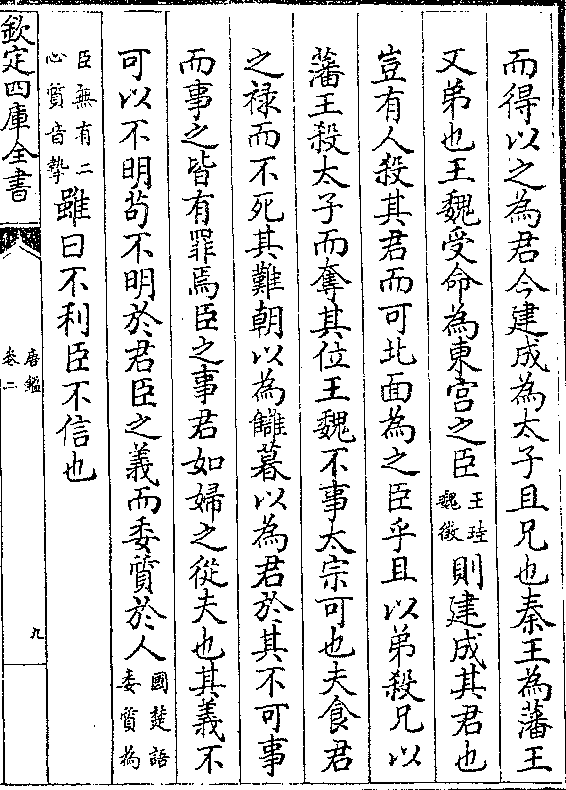 而得以之為君今建成為太子且兄也秦王為藩王
又弟也王魏受命為東宫之臣王珪魏徵則建成其君也
豈有人殺其君而可北面為之臣乎且以弟殺兄以
藩王殺太子而奪其位王魏不事太宗可也夫食君
之禄而不死其難朝以為讎暮以為君於其不可事
而事之皆有罪焉臣之事君如婦之從夫也其義不
可以不明茍不明於君臣之義而委質於人國楚語委質為
臣無有二心質音摯雖曰不利臣不信也
欽定四庫全書
唐鑑
卷二
九